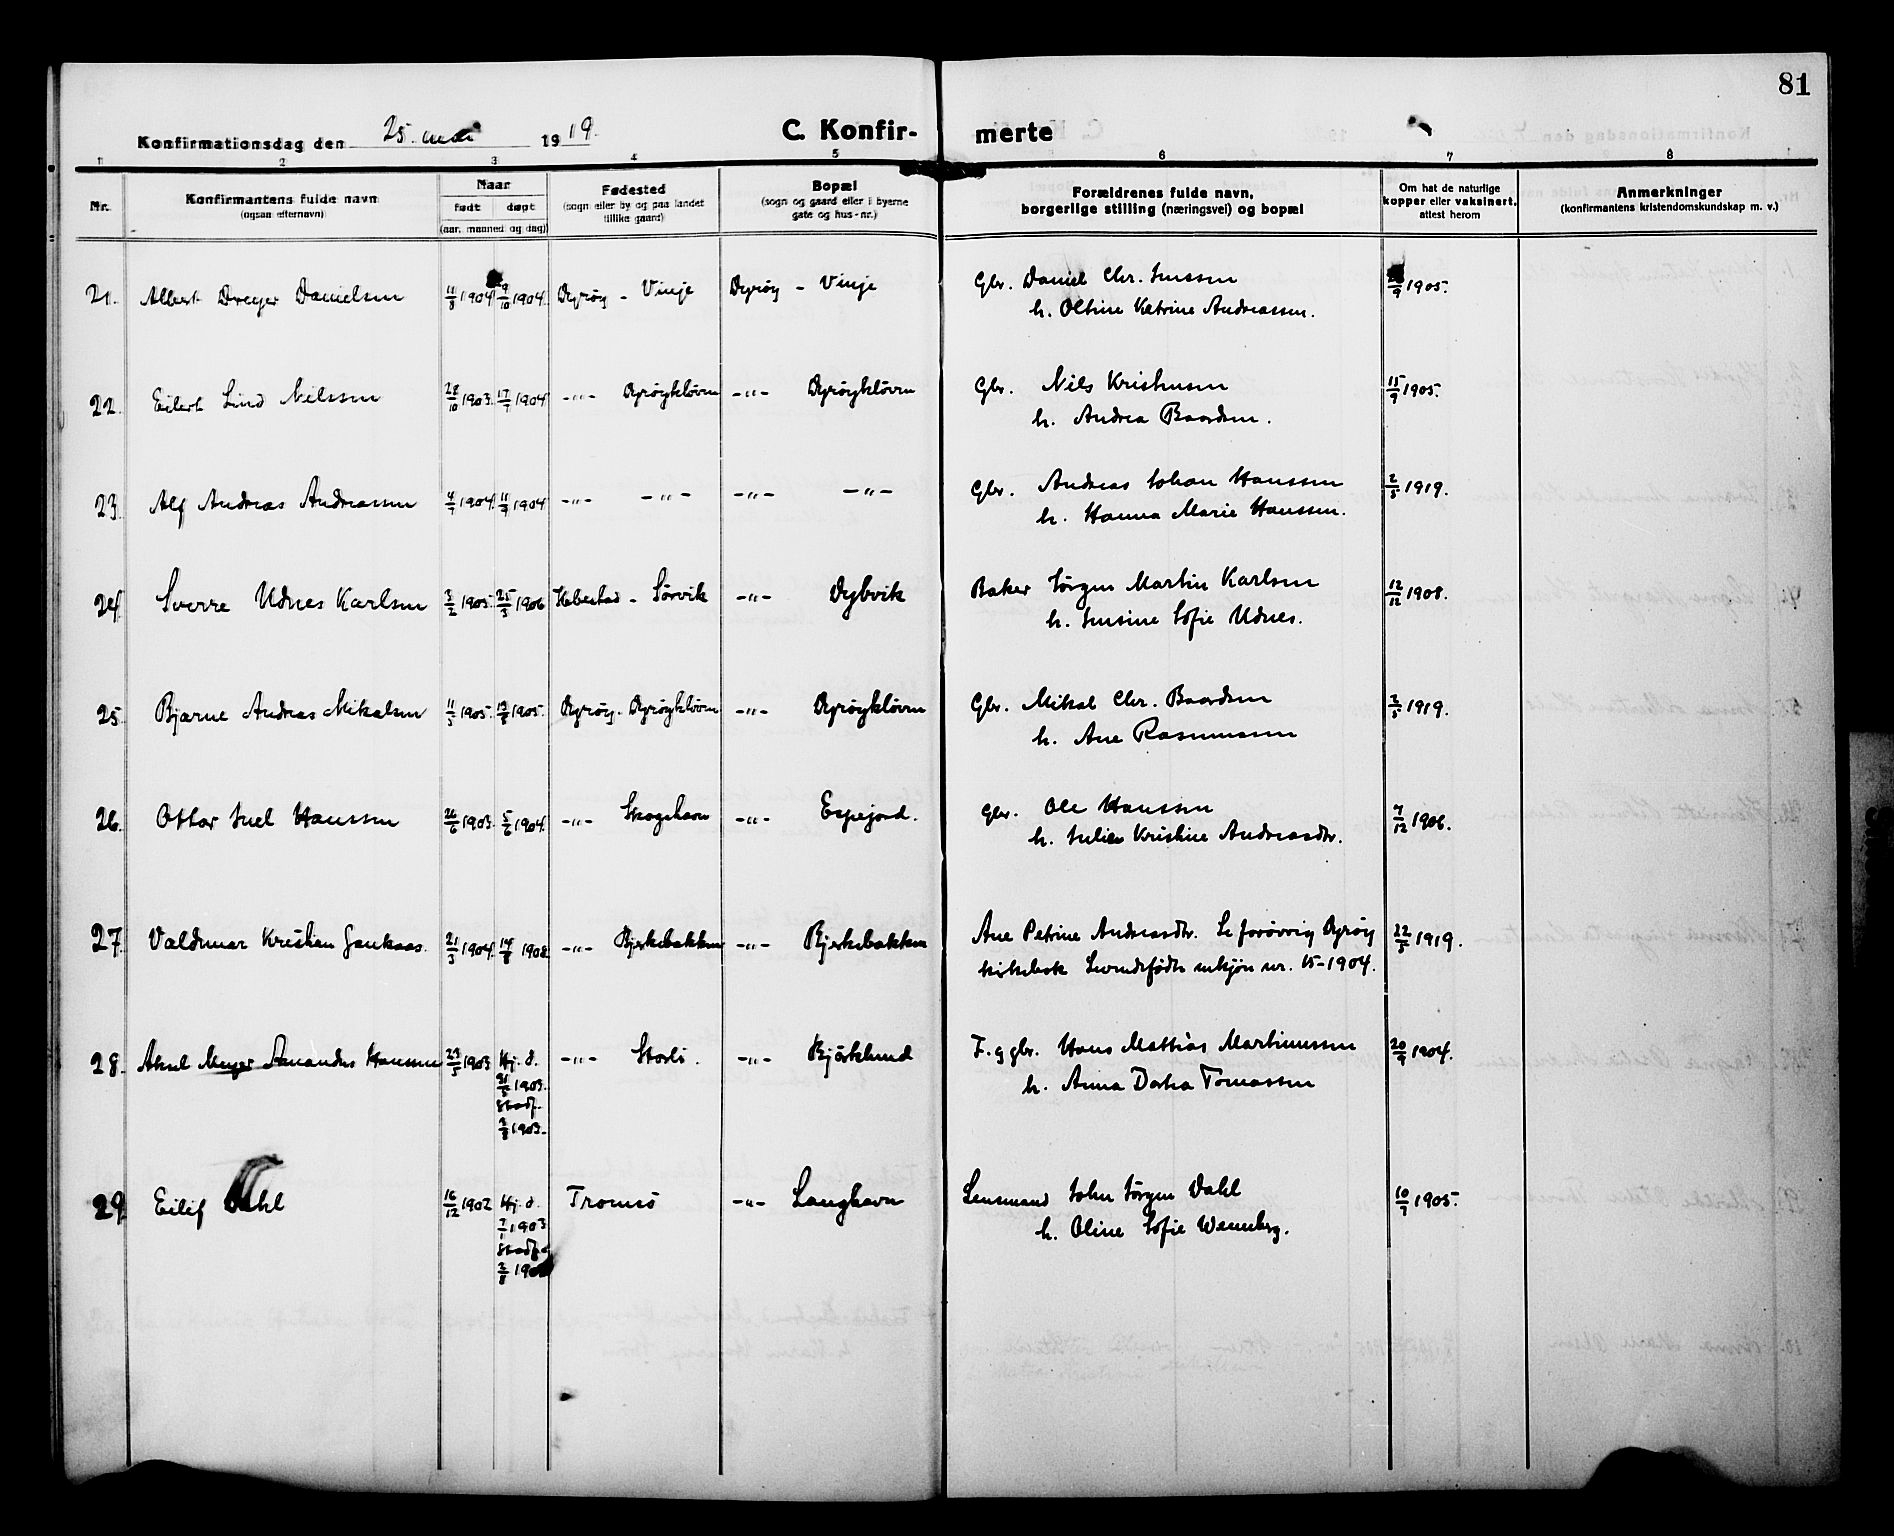 81
Konfirmationsdag den 25. mai 1919.
C. Konfir- merte
1 2 3 4 5 6 7 8
Nr.
Konfirmantens fulde navn
(ogsaa efternavn)
Naar
født døpt
(aar, maaned og dag)
Fødested
(sogn eller by og paa landet
tillike gaard)
Bopæl
(sogn og gaard eller i byerne
gate og hus-nr.)
Forældrenes fulde navn,
borgerlige stilling (næringsvei) og bopæl
Om hat de naturlige
kopper eller vaksinert,
attest herom
Anmerkninger
(konfirmantens kristendomskundskap m. v.)
21. Albert Dreyer Danielsen 11/8 1904. 9/10 1904. Dyrøy - Vinje Dyrøy - Vinje Gbr. Daniel Chr. Jenssen /9 1905.
h. Oltine Katrine Andreassen.
22. Eilert Lind Nilssen 28/10 1903. 17/7 1904 -"- Dyrøykløven -"- Dyrøykløven Gbr. Nils Kristensen 15/9 1905.
h. Andrea Baardsen.
23. Alf Andreas Andreassen 4/7 1904. 11/9 1904 -"- -"- -"- -"- Gbr. Andreas Johan Hanssen 2/5 1919.
h. Hanna Marie Hanssen.
24. Sverre Udnes Karlsen 3/2 1905. 25/3 1906 Ibbestad - Sørvik -"- Dybvik Baker Jørgen Martin Karlsen 12/12 1908.
h. Jensine Sofie Udnes.
25. Bjarne Andreas Mikalsen 11/5 1905. 13/8 1905. Dyrøy - Dyrøykløven -"- Dyrøykløven Gbr. Mikal Chr. Baardsen 2/5 1919.
h. Ane Rasmussen
26. Ottar Juel Hanssen 26/6 1903. 5/6 1904. -"- Skogshavn -"- Espejord. Gbr. Ole Hanssen 7/12 1906.
h. Julie Kristine Andreasdtr.
27. Valdemar Kristian Gaukaas. 21/3 1904. 14/8 1908 -"- Bjerkebakken -"- Bjerkebakken Ane Petrine Andreasdtr. Se forøvrig Dyrøy 22/5 1919.
kirkebok levendefødte mkjøn nr. 15-1904.
28. Aksel Meyer Amandus Hansen 23/5 1903 Hj. d. -"- Storli. -"- Bjørklund F. g gbr. Hans Mattias Martinussen 20/9 1904.
31/5 1903. h. Anna Dorta Tomassen
Stadf.
9/8 1903.
29. Eilif Dahl 16/12 1902 Hj. d. Tromsø -"- Langhavn Lensmand John Jørgen Dahl 10/7 1905.
7/1 1903 h. Oline Sofie Wennberg.
Stadf.
2/8